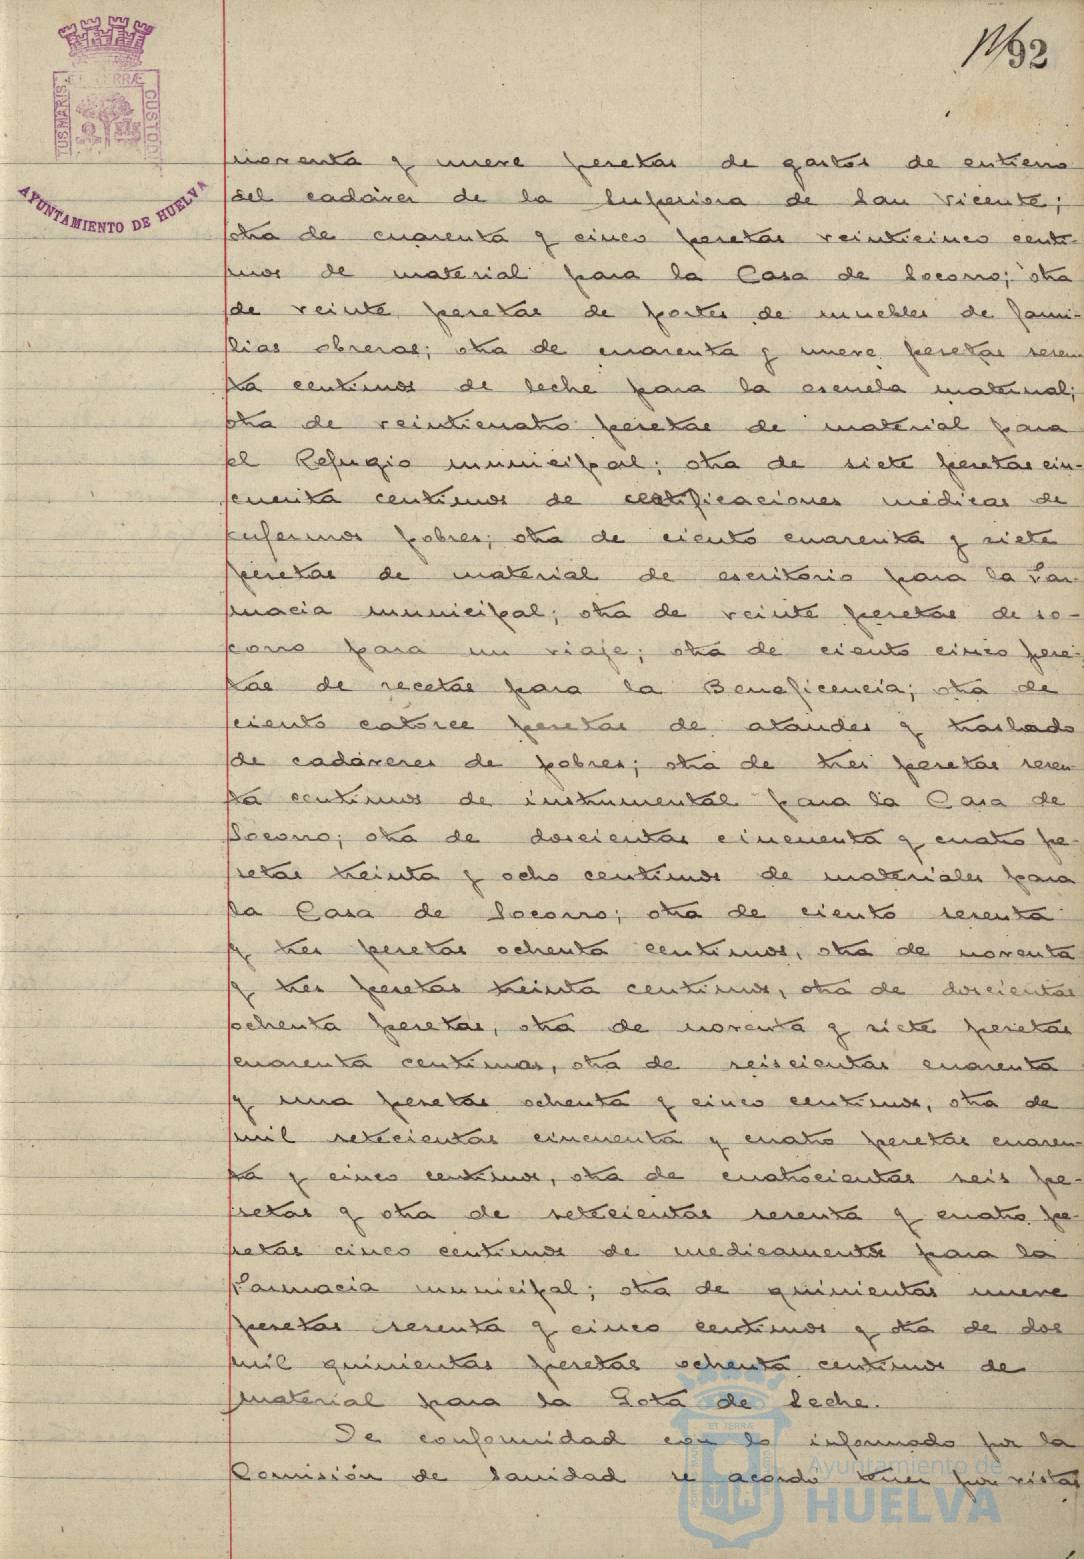 92
ET TERRÆ
TUS MARIS
CUSTODI
AYUNTAMIENTO DE HUELVA
noventa y nueve pesetas de gastos de entierro
del cadáver de la Superiora de San Vicente;
otra de cuarenta y cinco pesetas veinticinco centi-
mos de material para la Casa de Socorro; otra
de veinte pesetas de portes de muebles de fami-
lias obreras; otra de cuarenta y nueve pesetas sesen
ta centimos de leche para la escuela maternal;
otra de veinticuatro pesetas de material para
el Refugio municipal; otra de siete pesetas cin-
cuenta centimos de certificaciones médicas de
enfermos pobres; otra de ciento cuarenta y siete
pesetas de material de escritorio para la Far-
macia municipal; otra de veinte pesetas de so-
corro para un viaje; otra de ciento cinco pese-
tas de recetas para la Beneficencia; otra de
ciento catorce pesetas de ataudes y traslado
de cadáveres de pobres; otra de tres pesetas sesen
ta centimos de instrumental para la Casa de
Socorro; otra de doscientas cincuenta y cuatro pe-
setas treinta y ocho centimos de materiales para
la Casa de Socorro; otra de ciento sesenta
y tres pesetas ochenta centimos, otra de noventa
y tres pesetas treinta centimos, otra de doscientas
ochenta pesetas, otra de noventa y siete pesetas
cuarenta centimos, otra de seiscientas cuarenta
y una pesetas ochenta y cinco centimos, otra de
mil setecientas cincuenta y cuatro pesetas cuaren-
ta y cinco centimos, otra de cuatrocientas seis pe-
setas y otra de setecientas sesenta y cuatro pe-
setas cinco centimos de medicamentos para la
Farmacia municipal; otra de quinientas nueve
pesetas sesenta y cinco centimos y otra de dos
mil quinientas pesetas ochenta centimos de
material para la Gota de Leche.
De conformidad con lo informado por la
Comisión de Sanidad se acordó tener por vistas
Ayuntamiento de
HUELVA